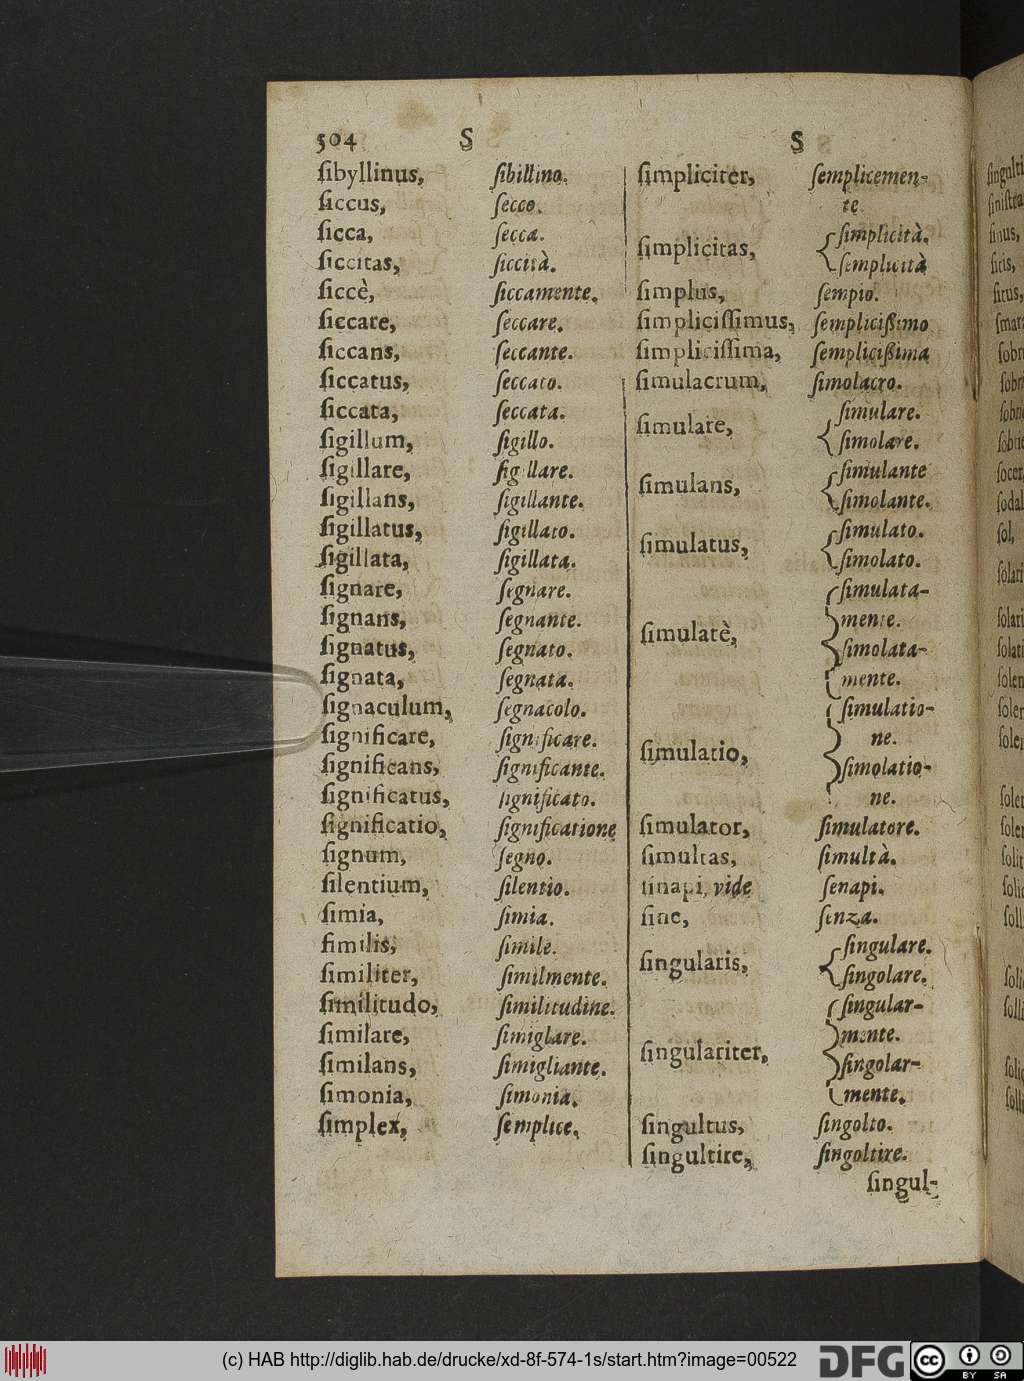 504 S S
ſibyllinus, ſibillino.
ſiccus, ſecco.
ſicca, ſecca.
ſiccitas, ſiccità.
ſiccè, ſiccamente.
ſiccare, ſeccare.
ſiccans, ſeccante.
ſiccatus, ſeccato.
ſiccata, ſeccata.
ſigillum, ſigillo.
ſigillare, ſigillare.
ſigillans, ſigillante.
ſigillatus, ſigillato.
ſigillata, ſigillata.
ſignare, ſegnare.
ſignans, ſegnante.
ſignatus, ſegnato.
ſignata, ſegnata.
ſignaculum, ſegnacolo.
ſignificare, ſignificare.
ſignificans, ſignificante.
ſignificatus, ſignificato.
ſignificatio, ſignificatione
ſignum, ſegno.
ſilentium, ſilentio.
ſimia, ſimia.
ſimilis, ſimile.
ſimiliter, ſimilmente.
ſimilitudo, ſimilitudine.
ſimilare, ſimiglare.
ſimilans, ſimigliante.
ſimonia, ſimonia.
ſimplex, ſemplice.
ſimpliciter, ſemplicemen-
te.
ſimplicitas, ſimplicità.
ſemplicità
ſimplus, ſempio.
ſimpliciſſimus, ſempliciſſimo
ſimpliciſſima, ſempliciſſima
ſimulacrum, ſimolacro.
ſimulare, ſimulare.
ſimolare.
ſimulans, ſimulante
ſimolante.
ſimulatus, ſimulato.
ſimolato.
ſimulatè, ſimulata-
mente.
ſimolata-
mente.
ſimulatio, ſimulatio-
ne.
ſimolatio-
ne.
ſimulator, ſimulatore.
ſimultas, ſimultà.
ſinapi, vide ſenapi.
ſine, ſenza.
ſingularis, ſingulare.
ſingolare.
ſingulariter, ſingular-
mente.
ſingolar-
mente.
ſingultus, ſingolto.
ſingultire, ſingoltire.
ſingul-
ſingulti
ſiniſtra
ſinus,
ſitis,
ſitus,
ſol,
(c) HAB http://diglib.hab.de/drucke/xd-8f-574-1s/start.htm?image=00522
DFG
cc BY SA